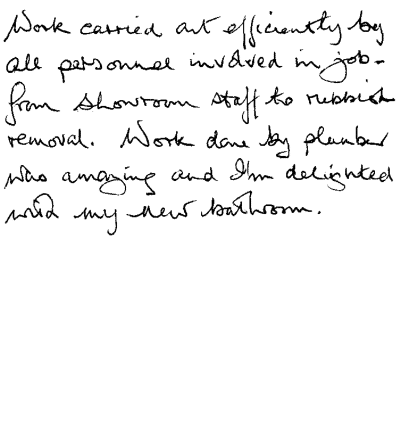 Work carried out efficiently by
all personnel involved in job -
from showroom staff to rubbish
removal. Work done by plumber
was amazing and I'm delighted
with my new bathroom.